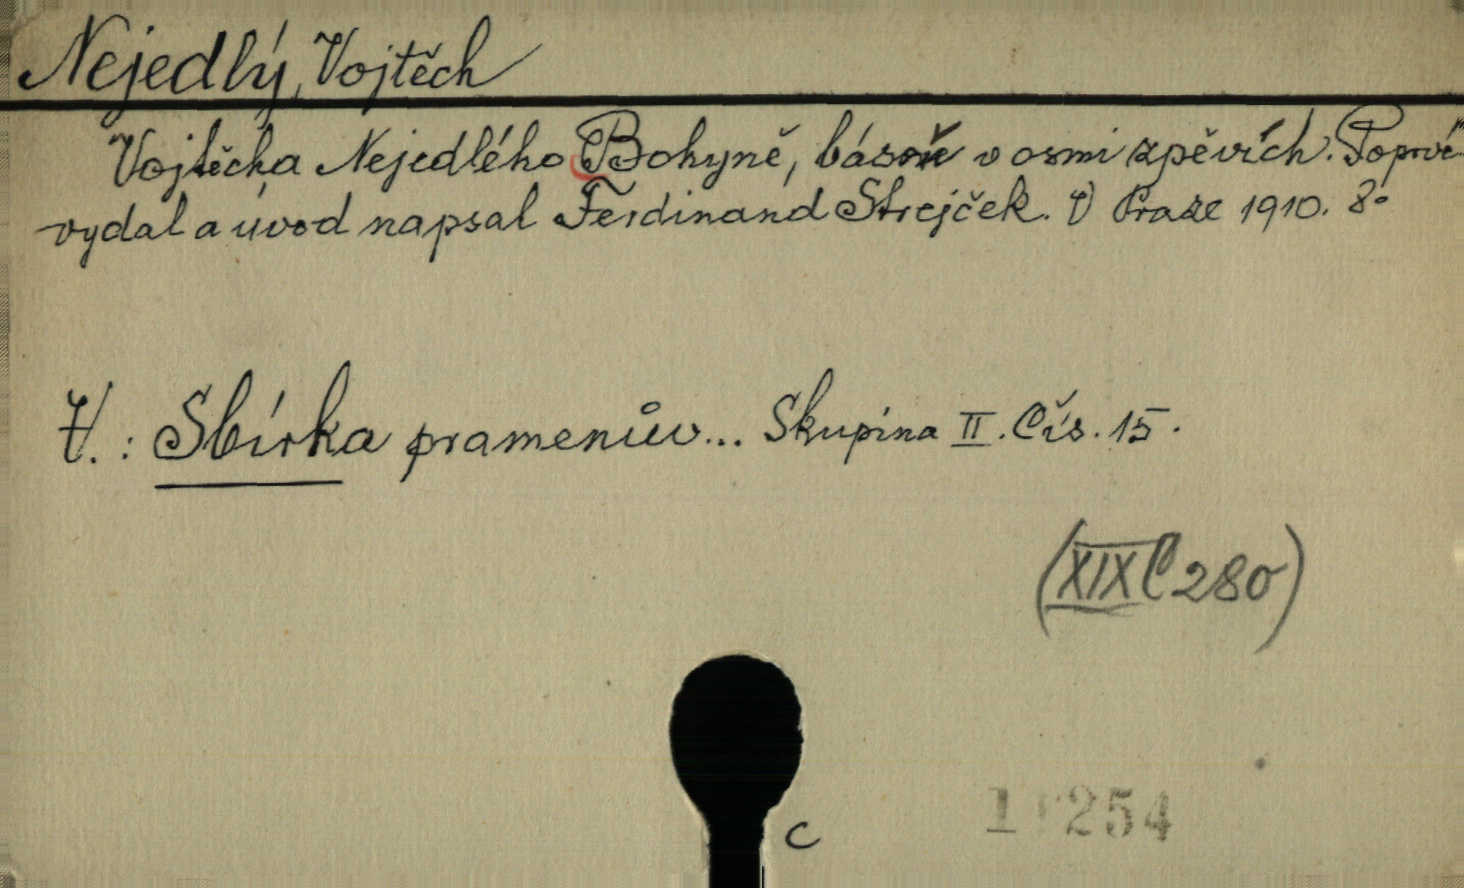 Nejedlý, Vojtěch
Vojtěcha Nejedlého Bohyně, báseň v osmi zpěvích. Poprvé
vydal a úvod napsal Ferdinand Strejček. V Praze 1910. 8°
V.: Sbírka pramenův... Skupina II. Čís. 15.
(XIX C 280)
C